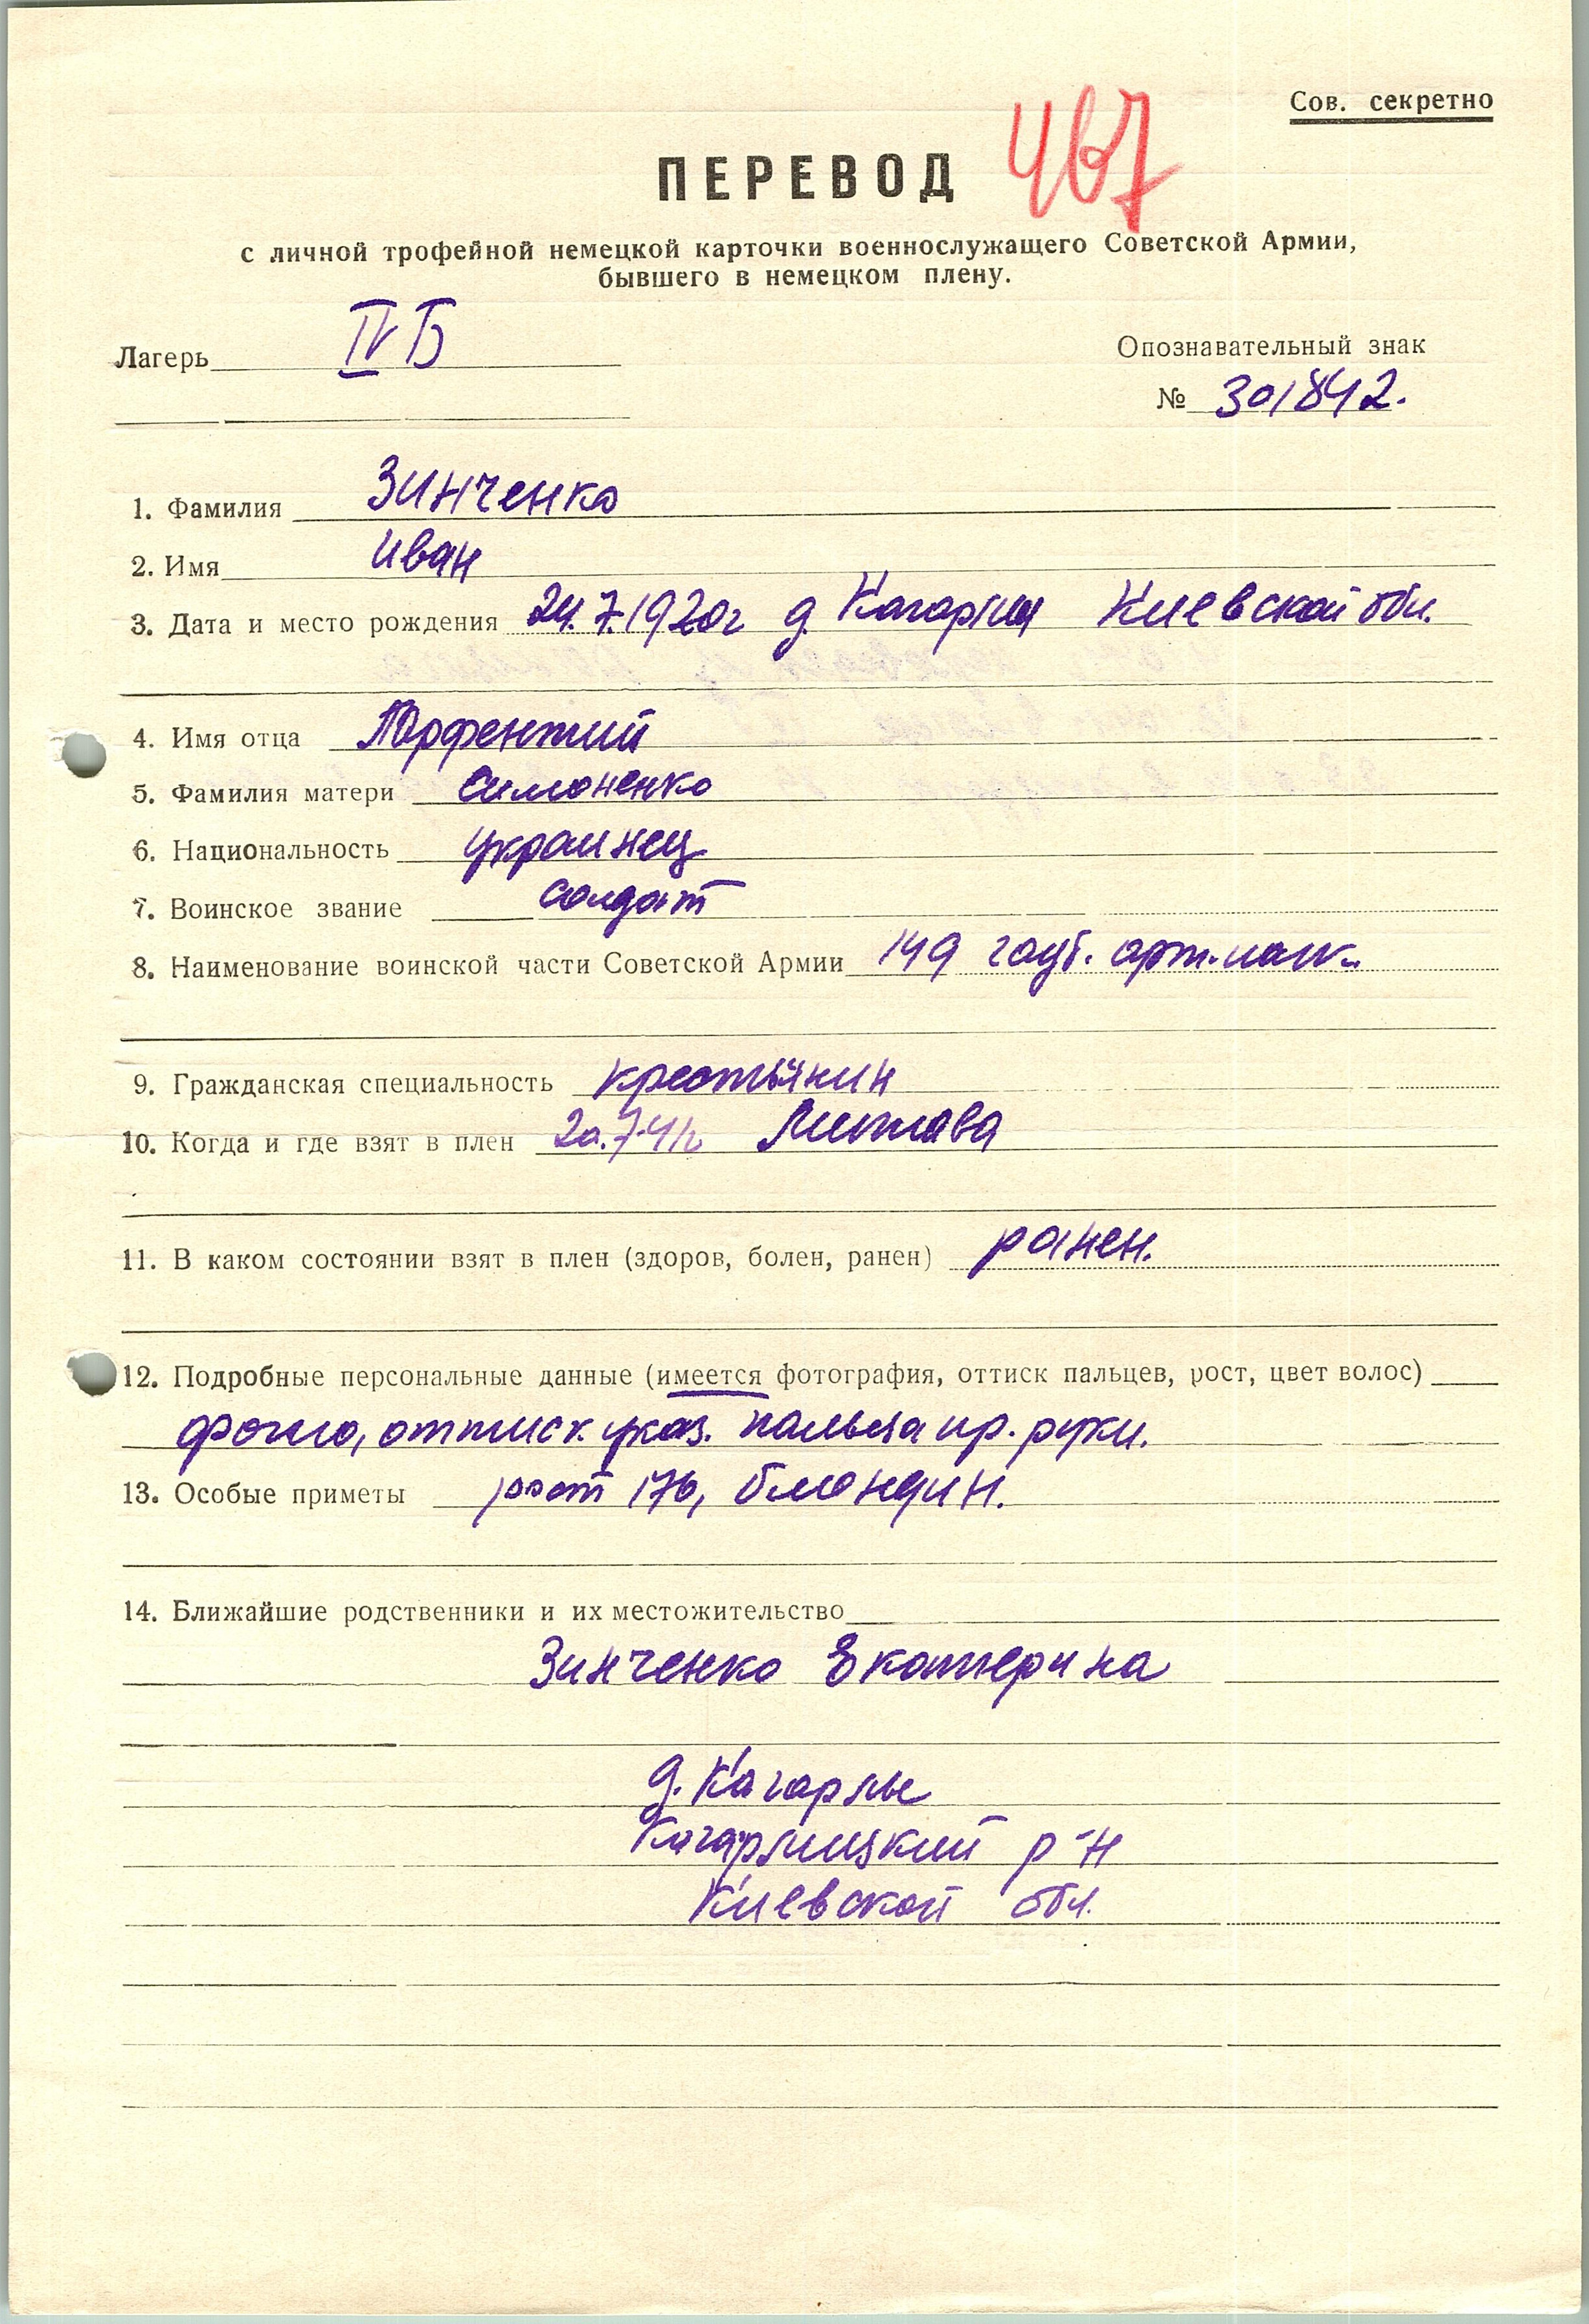 Сов. секретно
ПЕРЕВОД 467
с личной трофейной немецкой карточки военнослужащего Советской Армии,
бывшего в немецком плену.
Лагерь IV Б
Опознавательный знак
№ 301842.
1. Фамилия Зинченко
2. Имя Иван
3. Дата и место рождения 24.7.1920г д. Киевской обл.
4. Имя отца
5. Фамилия матери Симоненко
6. Национальность украинец
7. Воинское звание солдат
8. Наименование воинской части Советской Армии 149 гауб. арт.
9. Гражданская специальность крестьянин
10. Когда и где взят в плен 20.7.41г
11. В каком состоянии взят в плен (здоров, болен, ранен) ранен.
12. Подробные персональные данные (имеется фотография, оттиск пальцев, рост, цвет волос)
фото, оттиск указ. пальца пр. руки.
13. Особые приметы рост 176, блондин.
14. Ближайшие родственники и их местожительство
Зинченко Екатерина
д. Кагарлы
Кагарлицкий р-н
Киевской обл.